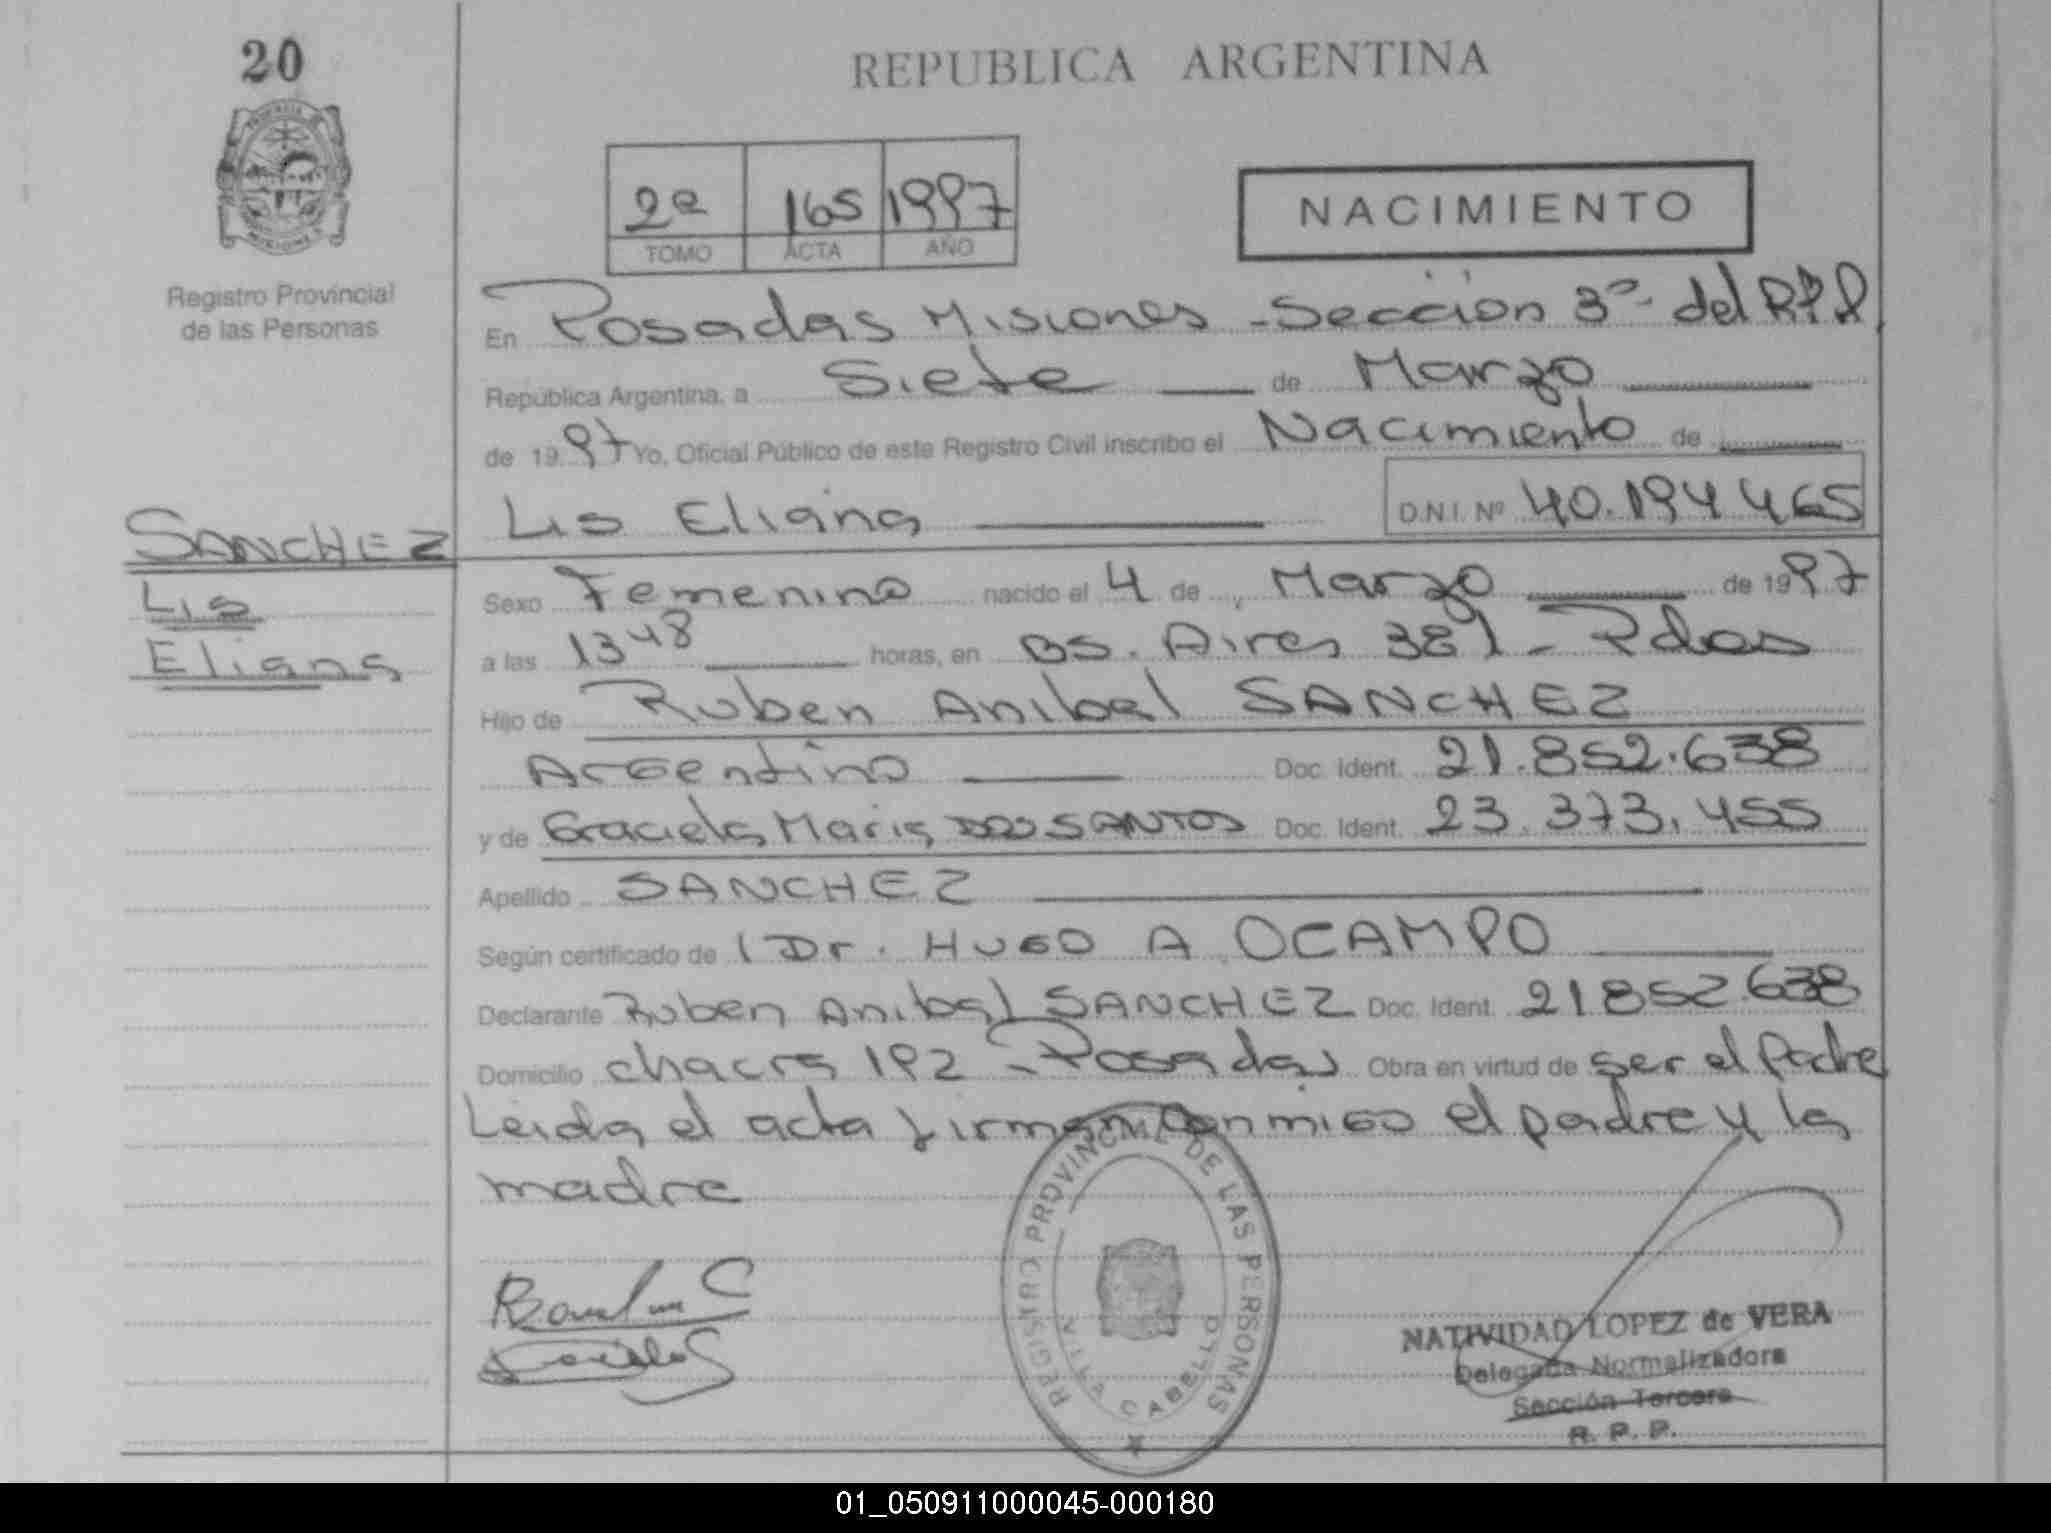 20
REPUBLICA ARGENTINA
2ª 165 1997
TOMO ACTA AÑO
NACIMIENTO
Registro Provincial
de las Personas
En Posadas Misiones - Sección 3ª del R.P.P.
República Argentina, a Siete de Marzo
de 1997 Yo, Oficial Público de este Registro Civil inscribo el Nacimiento de
Lis Eliana D.N.I. Nº 40.194.465
SANCHEZ
Lis
Eliana
Sexo Femenino nacido el 4 de Marzo de 1997
a las 13 48 horas, en BS. Aires 381 - Pdas
Hijo de Ruben Anibal SANCHEZ
Argentino Doc. Ident. 21.852.638
y de Graciela Maria DOS SANTOS Doc. Ident. 23.373.455
Apellido SANCHEZ
Según certificado de Dr. HUGO A OCAMPO
Declarante Ruben Anibal SANCHEZ Doc. Ident. 21852.638
Domicilio chacra 192 - Posadas Obra en virtud de ser el Padre
Leida el acta firman conmigo el padre y la
madre
REGISTRO PROVINCIAL DE LAS PERSONAS
VILLA CABELLO
NATIVIDAD LOPEZ de VERA
Delegada Normalizadora
Sección Tercera
R. P. P.
01_050911000045-000180